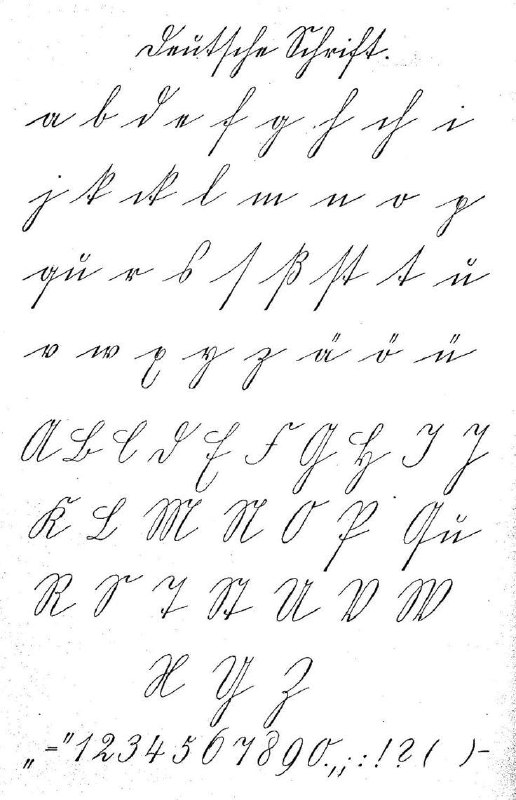 Deutsche Schrift.
a b d e f g h ch i
j k ck l m n o p
qu r s ſ ß ſt t u
v w x y z ä ö ü
A B C D E F G H I J
K L M N O P Qu
R S T St U V W
X Y Z
„ = " 1 2 3 4 5 6 7 8 9 0 . , ; : ! ? ( ) -